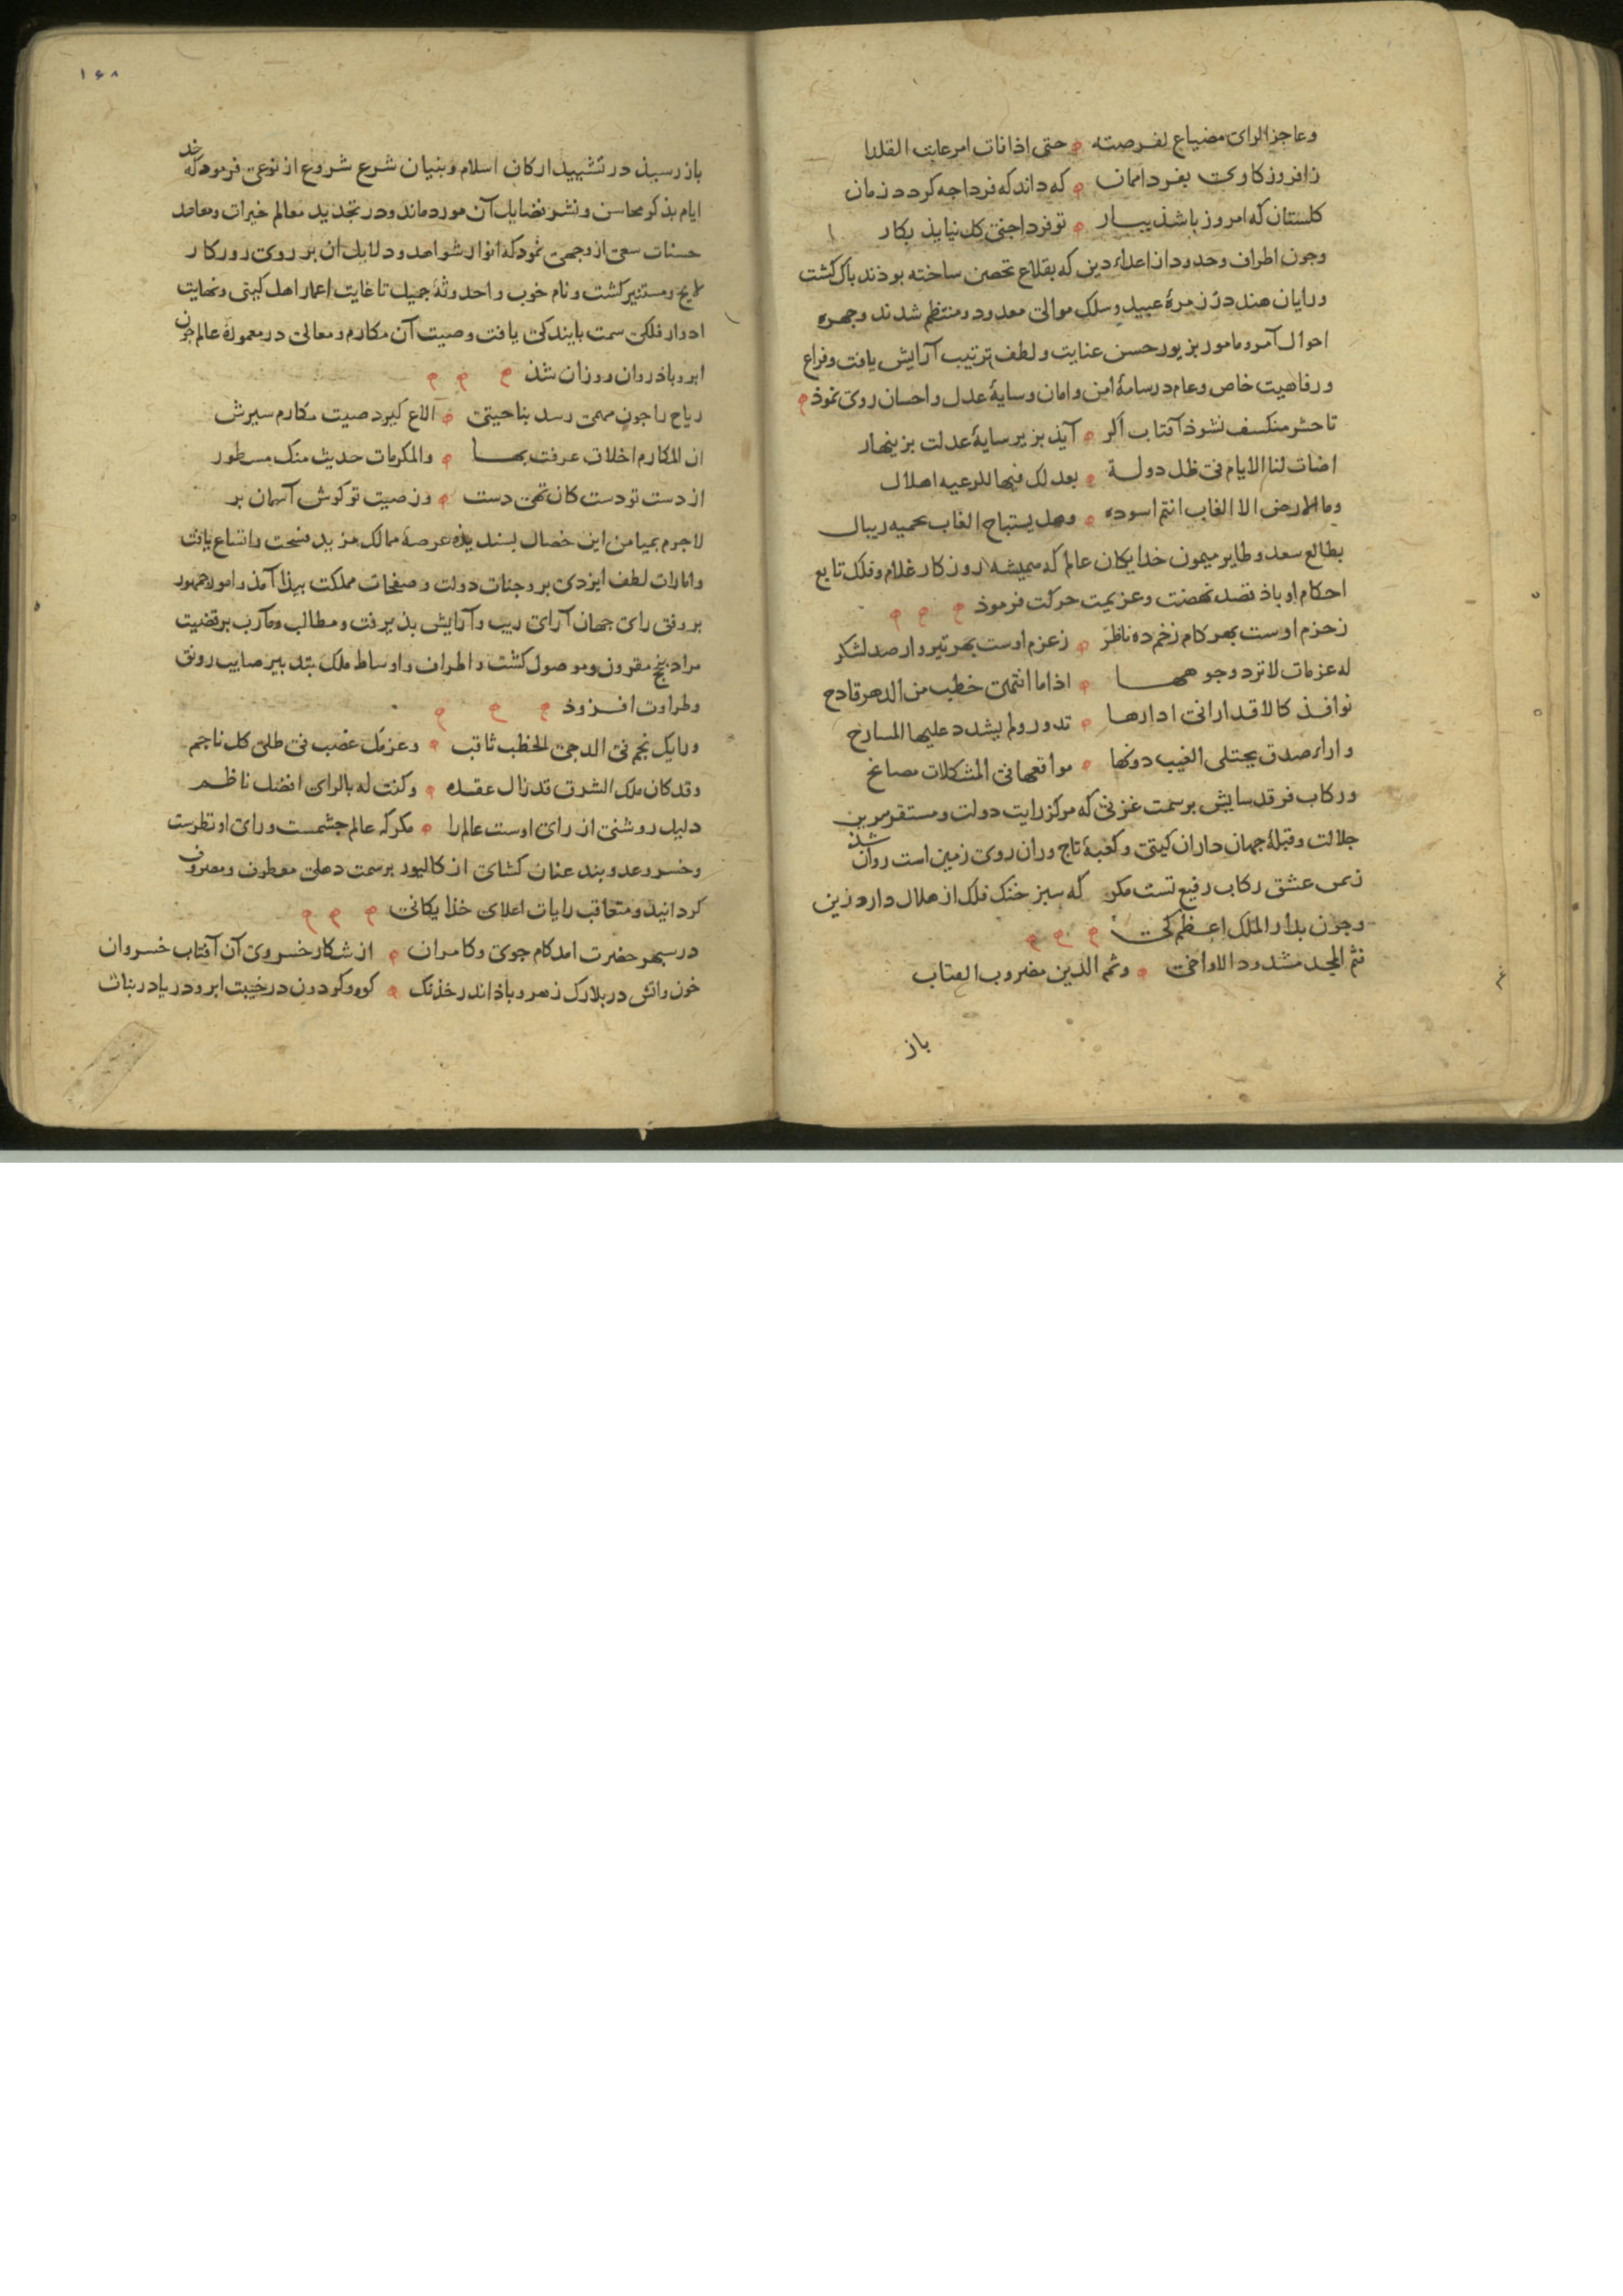 وعاجز الرای مضیاع لفرصته حتی اذا فات امر عاتب القدرا
که داند که فردا چه کردد زمان
کلستان که امروز باشذ ببار تو فردا چنی کل نیاید بکار
وجون اطراف وحدود از اعداء دین که بقلاع تحصن ساخته بودند باک کشت
ورایان هند در زمرهٔ عبید وسلک موالی معدود ومنتظم شدند وجهره
احوال آمر ومامور بزیور حسن عنایت ولطف ترتیب آرایش یافت وفراغ
ورفاهیت خاص وعام در سامهٔ امن وامان وسایهٔ عدل واحسان روی نموذ
تا حشر منکسف نشوذ آفتاب اکر آیذ بزیر سایهٔ عدلت بزینهار
اضات لنا الایام فی ظل دولة بعدلک فیها للرعیه اهلال
وما الارض الا الغاب انتم اسوده وهل یستباح الغاب یحمیه ریبال
بطالع سعد وطایر میمون خدایکان عالم که همیشه روزکار غلام وفلک تابع
احکام او باذ قصد نهضت وعزیمت حرکت فرموذ
زحزم اوست بهر کام زخم ده ناظر زعزم اوست بهر تیر وار صد لشکر
له عزمات لا ترد وجوهها اذا ما انتمی خطب من الدهر قادح
نوافذ کالاقدار فی ادارها تدور ولم یشدد علیها المسارح
واراء صدق یجتلی الغیب دونها مواقعها فی المشکلات مصابح
ورکاب فرقد سایش بر سمت غزنی که مرکز رایت دولت ومستقر سریر
جلالت وقبلهٔ جهان داران کیتی وکعبهٔ تاج وران روی زمین است روان شذ
زبس عشق رکاب رفیع تست مکر که سبز خنک فلک از هلال دارد زین
وجون بدار الملک اعظم
ثم المجد مشدود الاواخی وثم الدین مضروب القباب
باز
۱۶۸
باز رسیذ در تشیید ارکان اسلام وبنیان شرع شروع از نوعی فرمود که خد
ایام بذکر محاسن ونشر فضایل آن مورد ماند ودر تجدید معالم خیرات ومعاهد
حسنات سعی از وجهی نمود که انوار شواهد ودلایل ان بر روی روزکار
لایح ومستنیر کشت ونام خوب واحدوثهٔ جمیل تا غایت اعمار اهل کیتی ونهایت
ادوار فلکی سمت بایندکی یافت وصیت آن مکارم ومعالی در معمورهٔ عالم جون
ابر وباذ روان ودوزان شذ
ریاح را جون مهمی رسد بناحیتی الاغ کیرد صیت مکارم سیرش
ان المکارم اخلاق عرفت بها والمکرمات حدیث منک مسطور
از دست تو دست کان تهی دست وز صیت تو کوش آسمان بر
لاجرم بمیامن این خصال بسندیذه عرصهٔ ممالک مزید فسحت واتساع یافت
وامارات لطف ایزدی بر وجنات دولت وصفحات مملکت بیذا آمذ وامور جمهور
بر وفق رای جهان آرای زیب وآرایش بذیرفت ومطالب ومآرب بر قضیت
مراد بنجح مقرون وموصول کشت واطراف واوساط ملک بتدبیر صایب رونق
وطراوت افزوذ
ورایک نجم فی الدجی الخطب ثاقب وعزمک عضب فی طلی کل ناجم
وقد کان ملک الشرق قد زال عقده وکنت له بالرای افضل ناظم
دلیل روشنی از رای اوست عالم را مکر که عالم جشمست ورای او نظرست
وخسرو عدو بند عنان کشای از کالیور بر سمت دهلی معطوف ومصروف
کردانید ومتعاقب رایات اعلای خذایکانی
در سبهر حضرت امد کام جوی وکامران از شکار خسروی آن آفتاب خسروان
خون واتش در بلارک زهر وباذ اندر خذنک کوه وکردون در جنیبت ابر ودریا در بنات